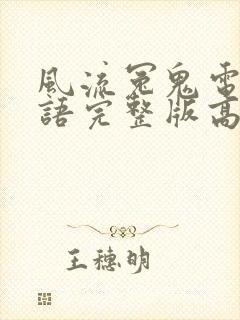 風流冤鬼電
語完整版高
王穗明